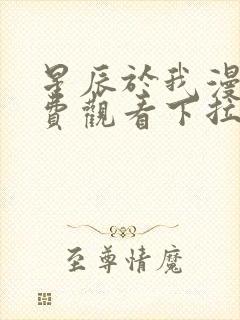 星辰於我漫
費觀看下拉
至尊情魔